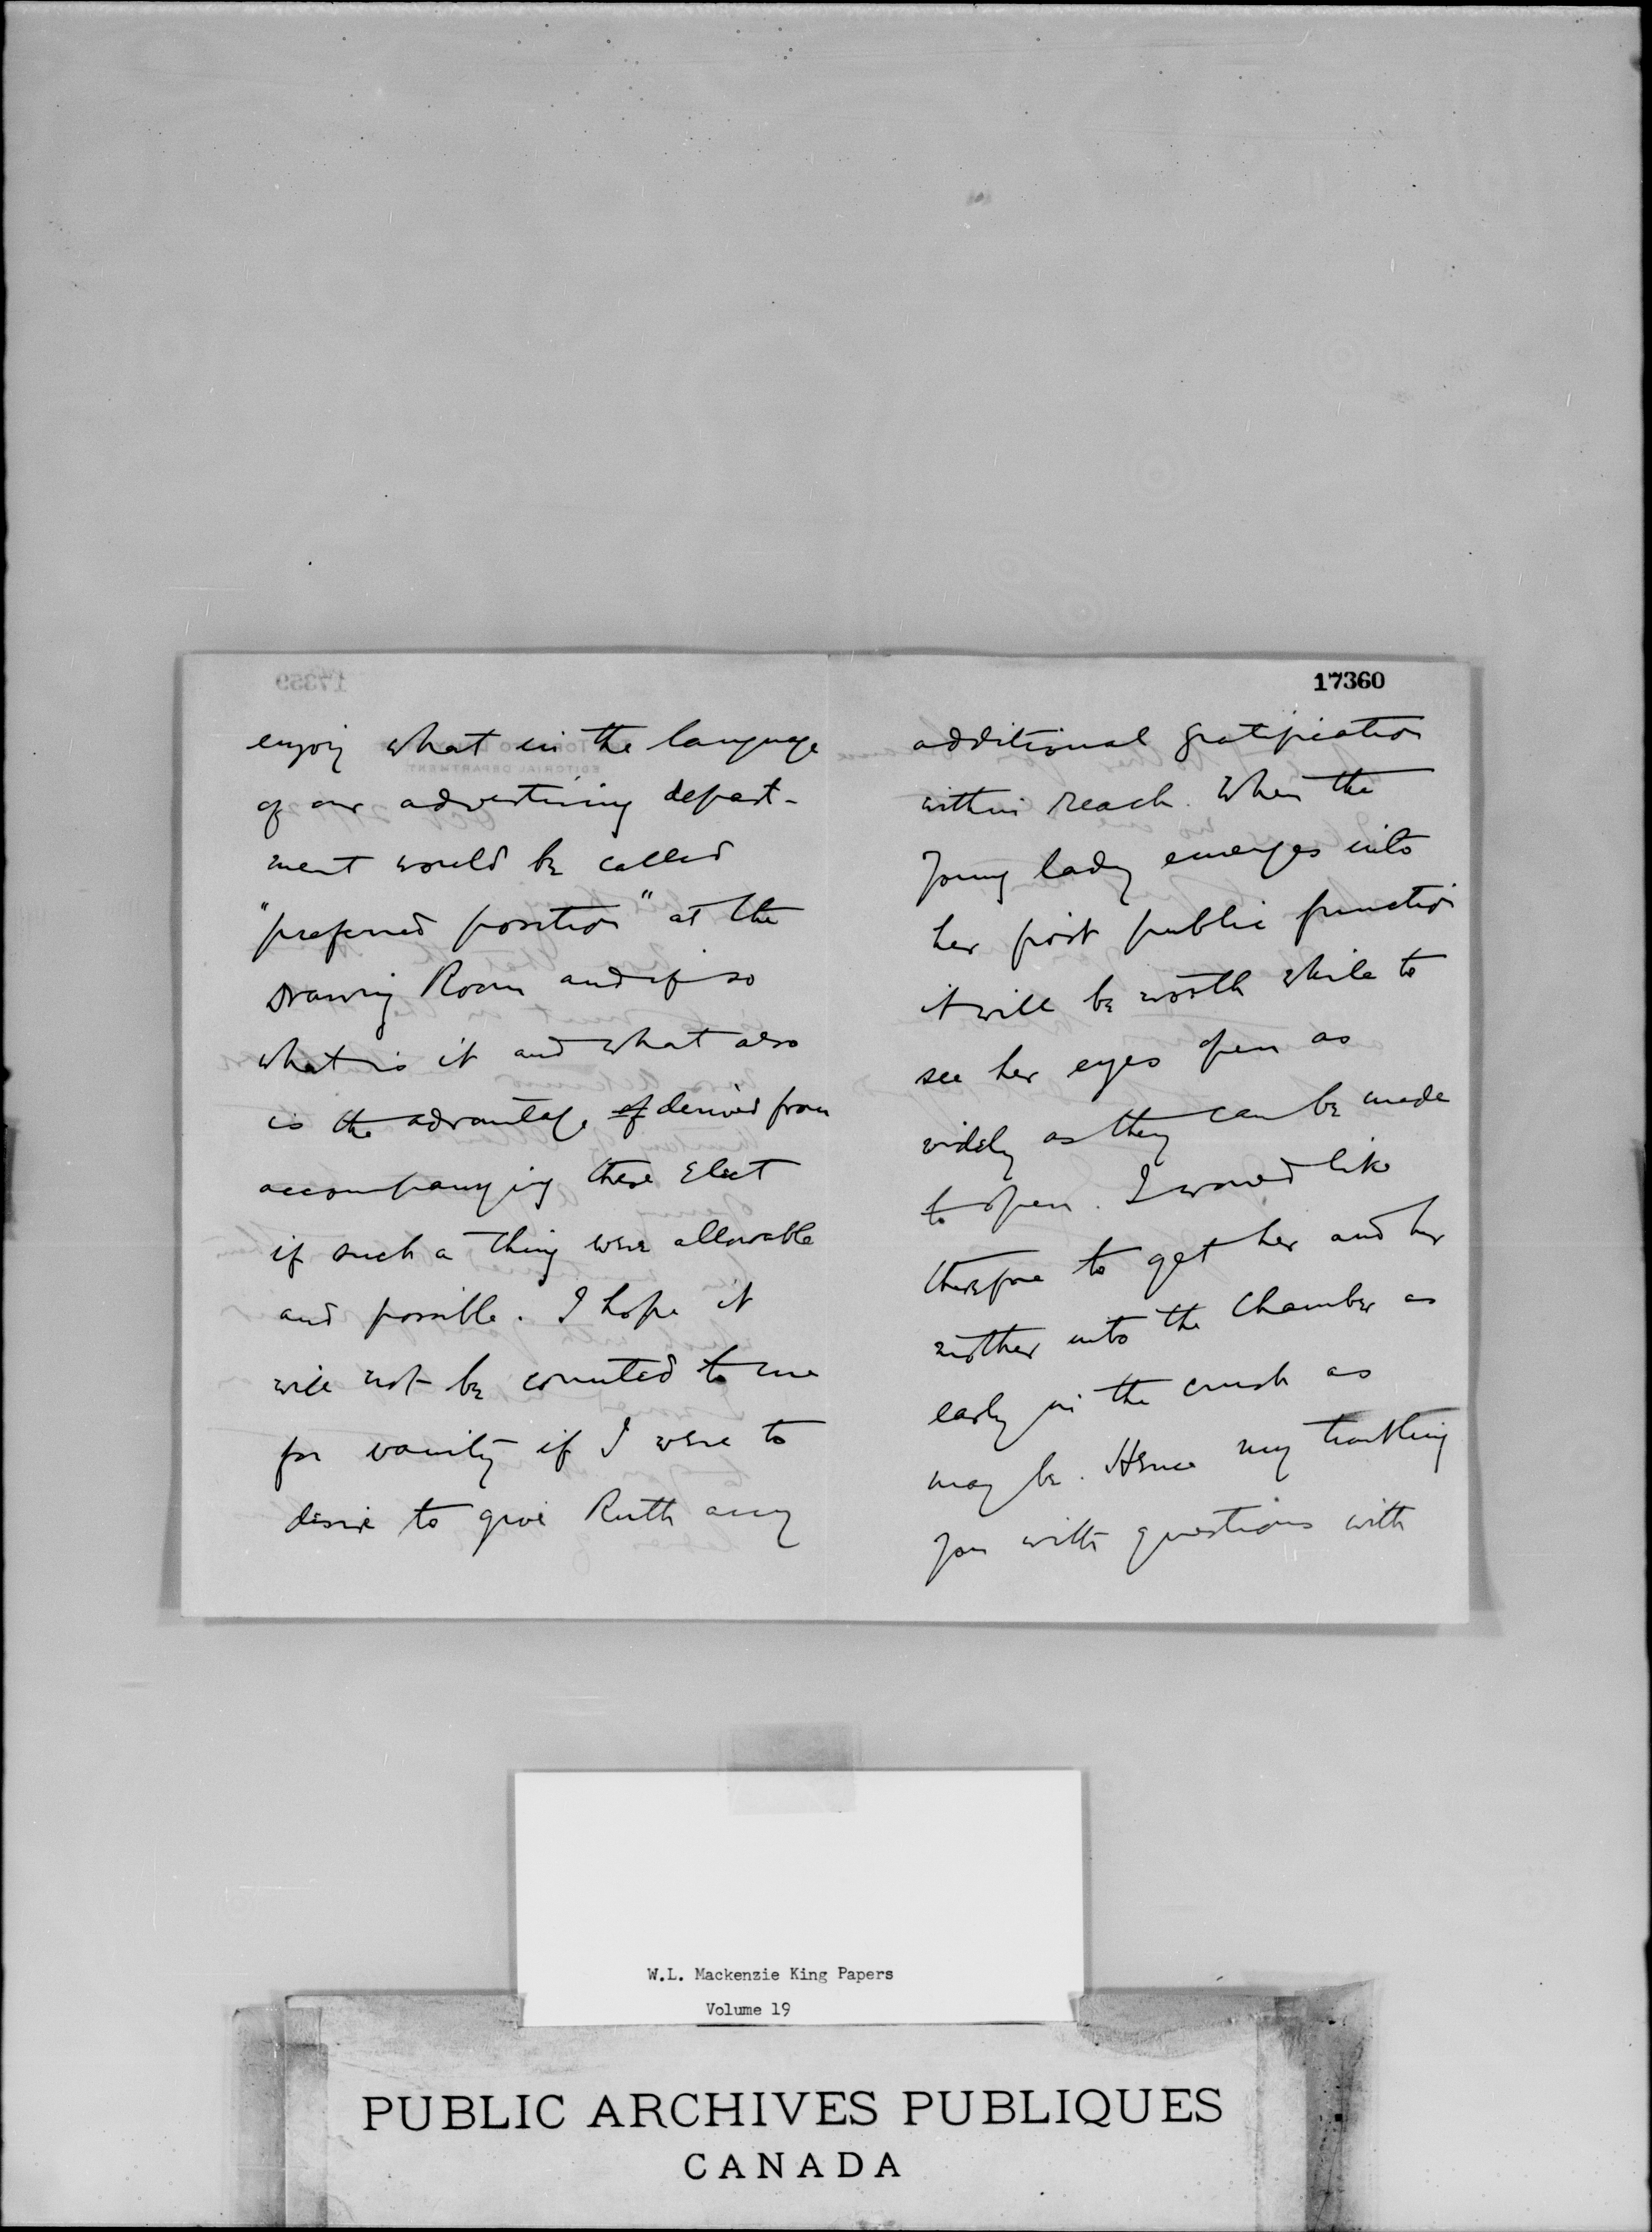 enjoy what in the language
of our advertising depart-
ment would be called
"preferred position" at the
Drawing Room and if so
what is it and what also
is the advantage of derived from
accompanying these Elect
if such a thing were allowable
and possible. I hope it
will not be counted to me
for vanity if I were to
desire to give Ruth any
17360
additional gratification
within reach. When the
young lady emerges into
her first public function
it will be worth while to
see her eyes open as
widely as they can be made
to open. I would like
therefore to get her and her
mother into the Chamber as
early in the crush as
may be. Hence my troubling
you with questions with
W.L. Mackenzie King Papers
Volume 19
PUBLIC ARCHIVES PUBLIQUES
CANADA